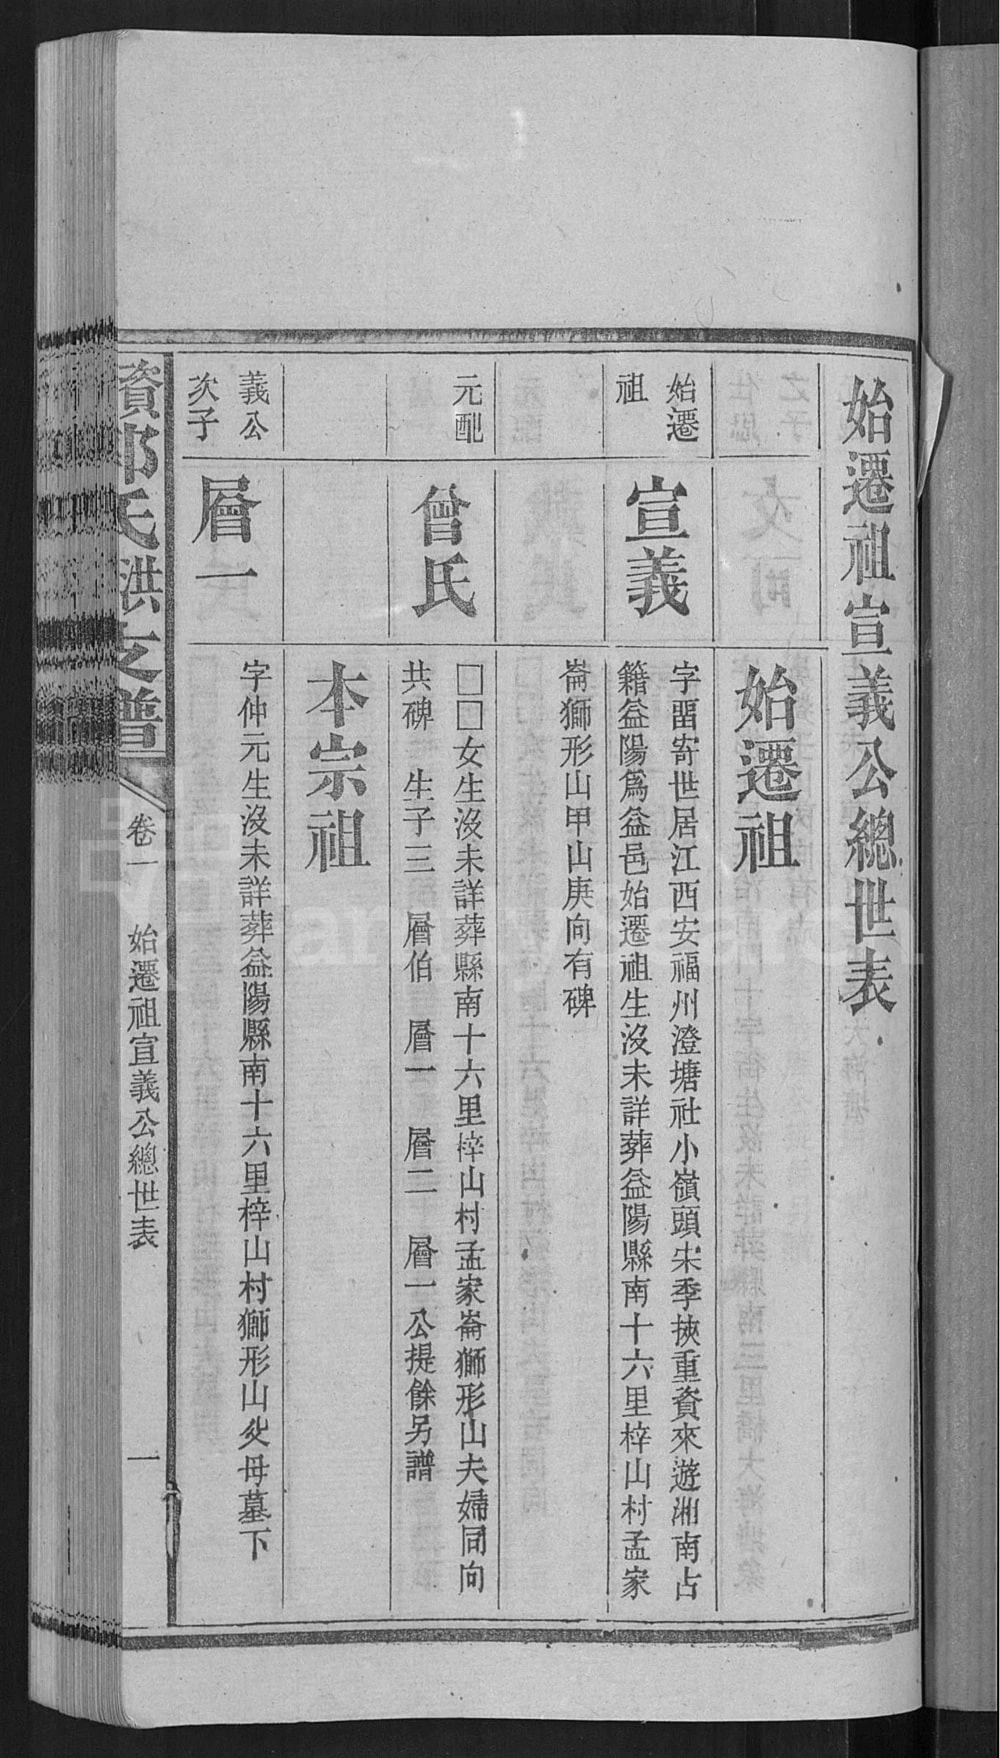 始遷祖宣義公總世表
始遷祖
始遷
祖
宣義
字畱寄世居江西安福州澄塘社小嶺頭宋季挾重資來遊湘南占
籍益陽爲益邑始遷祖生沒未詳葬益陽縣南十六里梓山村孟家
崙獅形山甲山庚向有碑
元配
曾氏
□□女生沒未詳葬縣南十六里梓山村孟家崙獅形山夫婦同向
共碑　生子三　層伯　層一　層二　層一公提餘另譜
本宗祖
義公
次子
層一
字仲元生沒未詳葬益陽縣南十六里梓山村獅形山父母墓下
氏洪支譜
卷一　始遷祖宣義公總世表　一